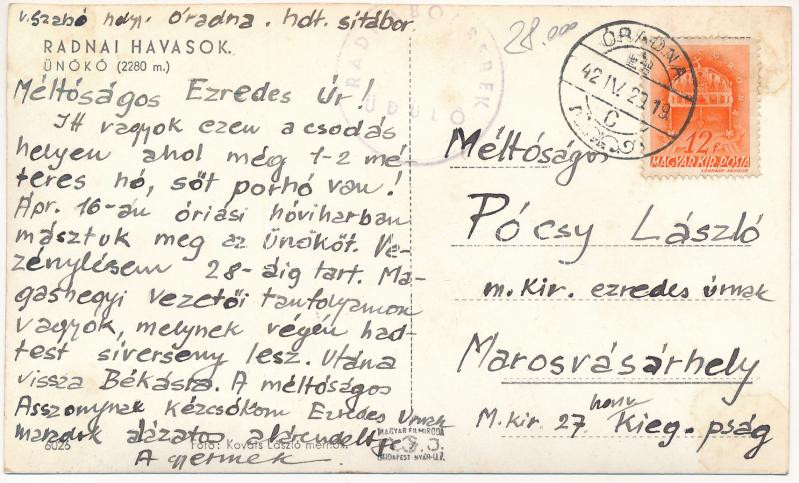 v. Szabó hdgy. Óradna. hdt. sítábor
RADNAI HAVASOK.
ÜNŐKŐ (2280 m.)
Méltóságos Ezredes Úr!
Itt vagyok ezen a csodás
helyen ahol még 1-2 mé-
teres hó, sőt porhó van!
Ápr. 16-án óriási hóviharban
másztuk meg az Ünőkőt. Ve-
zénylésem 28-áig tart. Ma-
gashegyi vezetői tanfolyamon
vagyok, melynek végén had-
test síverseny lesz. Utána
vissza Békásra. A méltóságos
Asszonynak kézcsókom Ezredes Úrnak
maradok alázatos alárendeltje
A gyermek.
6026 Foto: Kováts László mérnök.
MAGYAR FILMIRODA
BUDAPEST
28.000
ÓRADNA
42 IV. 20. 19
C
12 f
MAGYAR KIR. POSTA
LÉGRÁDY SÁNDOR
Méltóságos
Pócsy László
m. kir. ezredes úrnak
Marosvásárhely
M. kir. 27 honv Kieg. pság